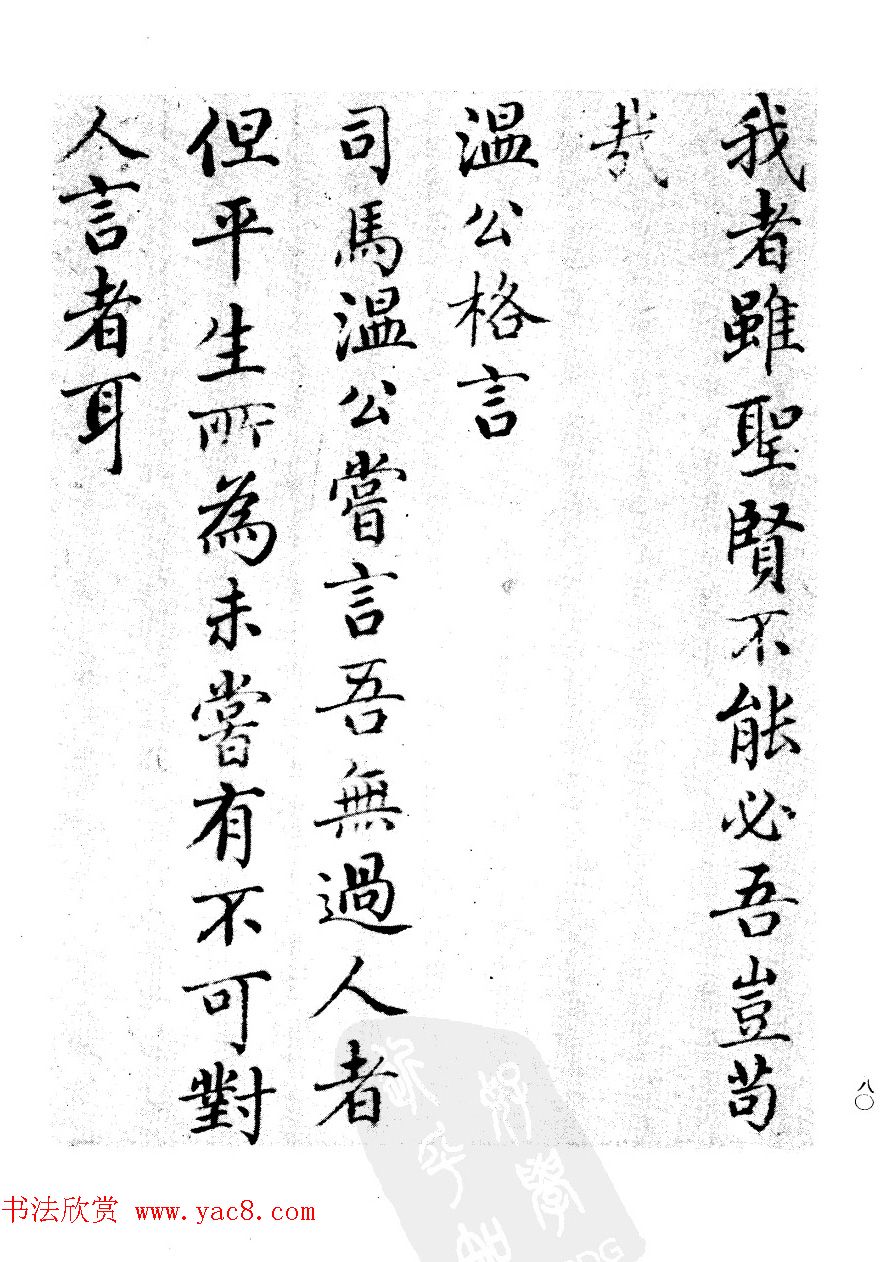 我者雖聖賢不能必吾豈苟
哉
溫公格言
司馬溫公嘗言吾無過人者
但平生所為未嘗有不可對
人言者耳
八〇
书法欣赏 www.yac8.com